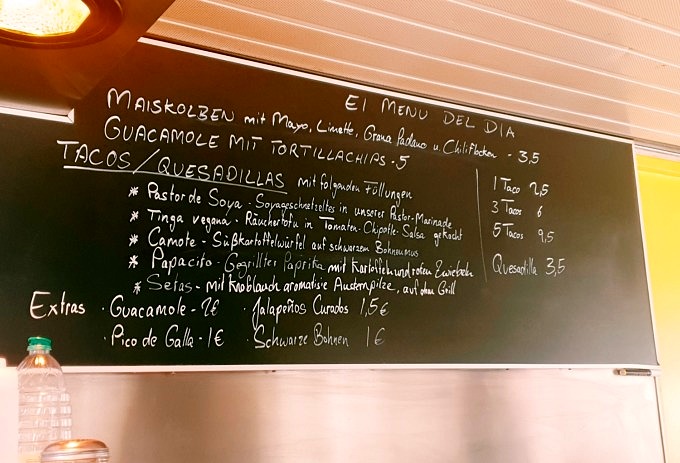 El MENU DEL DIA
MAISKOLBEN mit Mayo, Limette, Grana Padano u. Chiliflocken - 3,5
GUACAMOLE MIT TORTILLACHIPS - 5
TACOS/QUESADILLAS mit folgenden Füllungen
* Pastor de Soya - Sojageschnetzeltes in unserer Pastor-Marinade
* Tinga vegana - Räuchertofu in Tomaten-Chipotle-Salsa gekocht
* Camote - Süßkartoffelwürfel auf schwarzem Bohnenmus
* Papacito - Gegrillter Paprika mit Kartoffeln und roten Zwiebeln
* Setas - mit Knoblauch aromatisie Austernpilze, auf dem Grill
1 Taco 2,5
3 Tacos 6
5 Tacos 9,5
Quesadilla 3,5
Extras · Guacamole - 2€ · Jalapeños Curados 1,5€
· Pico de Galla - 1€ · Schwarze Bohnen 1€